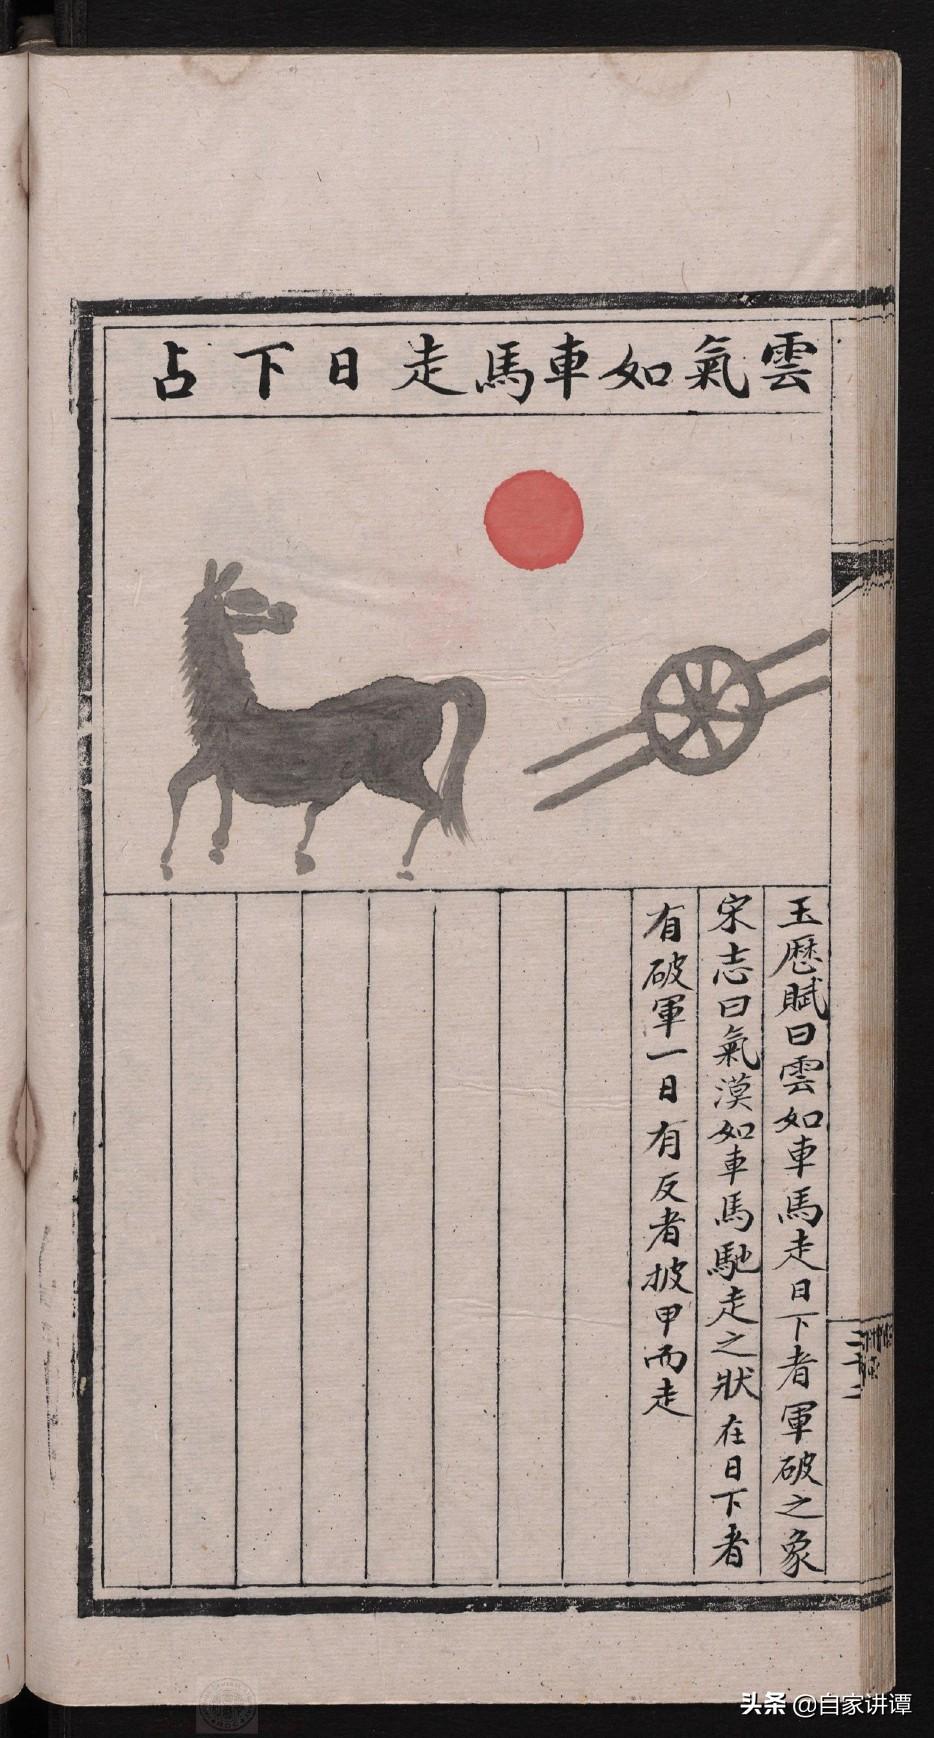 雲氣如車馬走日下占
玉歷賦曰雲如車馬走日下者軍破之象
宋志曰氣漠如車馬馳走之狀在日下者
有破軍一曰有反者披甲而走
二十二
头条 @自家讲谭